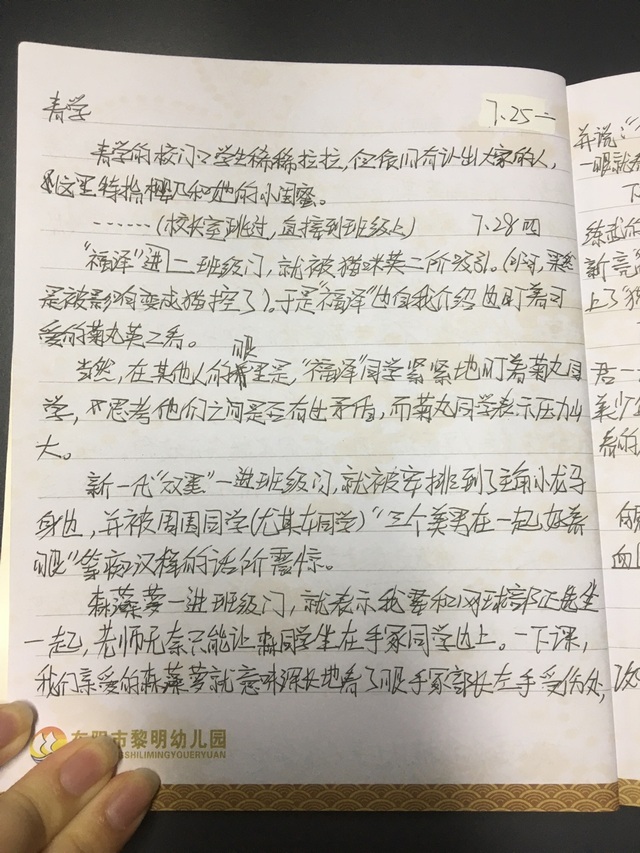 青学
7.25一
青学的校门口学生稀稀拉拉,但依旧有认出大家的人,
这里特指樱乃和她的小闺蜜。
……(校长室跳过,直接到班级上) 7.28四
"福泽"进一班级门,就被猫咪英二所吸引。(小河,果然
是被影响变成猫控了)。于是"福泽"也自我介绍也盯着可
爱的菊丸英二看。
当然,在其他人的眼里是,"福泽"同学紧紧地盯着菊丸同
学,思考他们之间是否有过矛盾,而菊丸同学表示压力山
大。
新一代"双黑"一进班级门,就被安排到了主角小龙马
身边,并被周围同学(尤其女同学)"三个美男在一起好养
眼"等痴汉样的话所震惊。
森藻萝一进班级门,就表示我要和网球部正选坐
一起,老师无奈只能让森同学坐在手冢同学边上。一下课,
我们亲爱的森藻萝就意味深长地看了眼手冢部长左手受伤处,
市黎明幼儿园
SHILIMINGYOUERYUAN
并说:"
一眼就
下
练武
新亮
上了"
君一
美少
春的
向